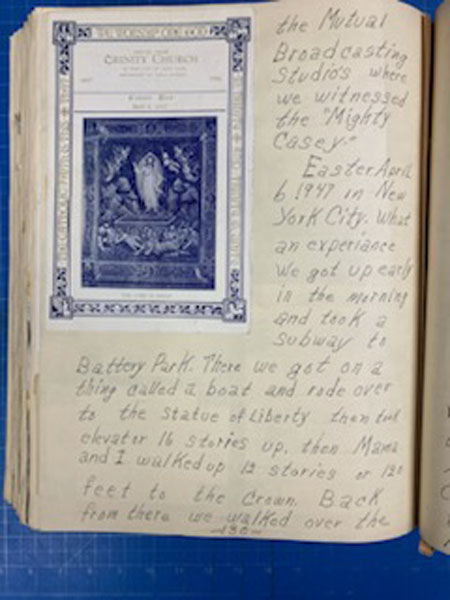 TO WORSHIP GOD
TRINITY CHURCH
the Mutual
Broadcasting
Studio's where
we witnessed
the "Mighty
Casey."
Easter April
6 1947 in New
York City. What
an experiance
we got up early
in the morning
and took a
subway to
Battery Park. There we got on a
thing called a boat and rode over
to the Statue of Liberty then took
elevator 16 stories up, then Mama
and I walked up 12 stories or 120
feet to the Crown. Back
from there we walked over the
-130-